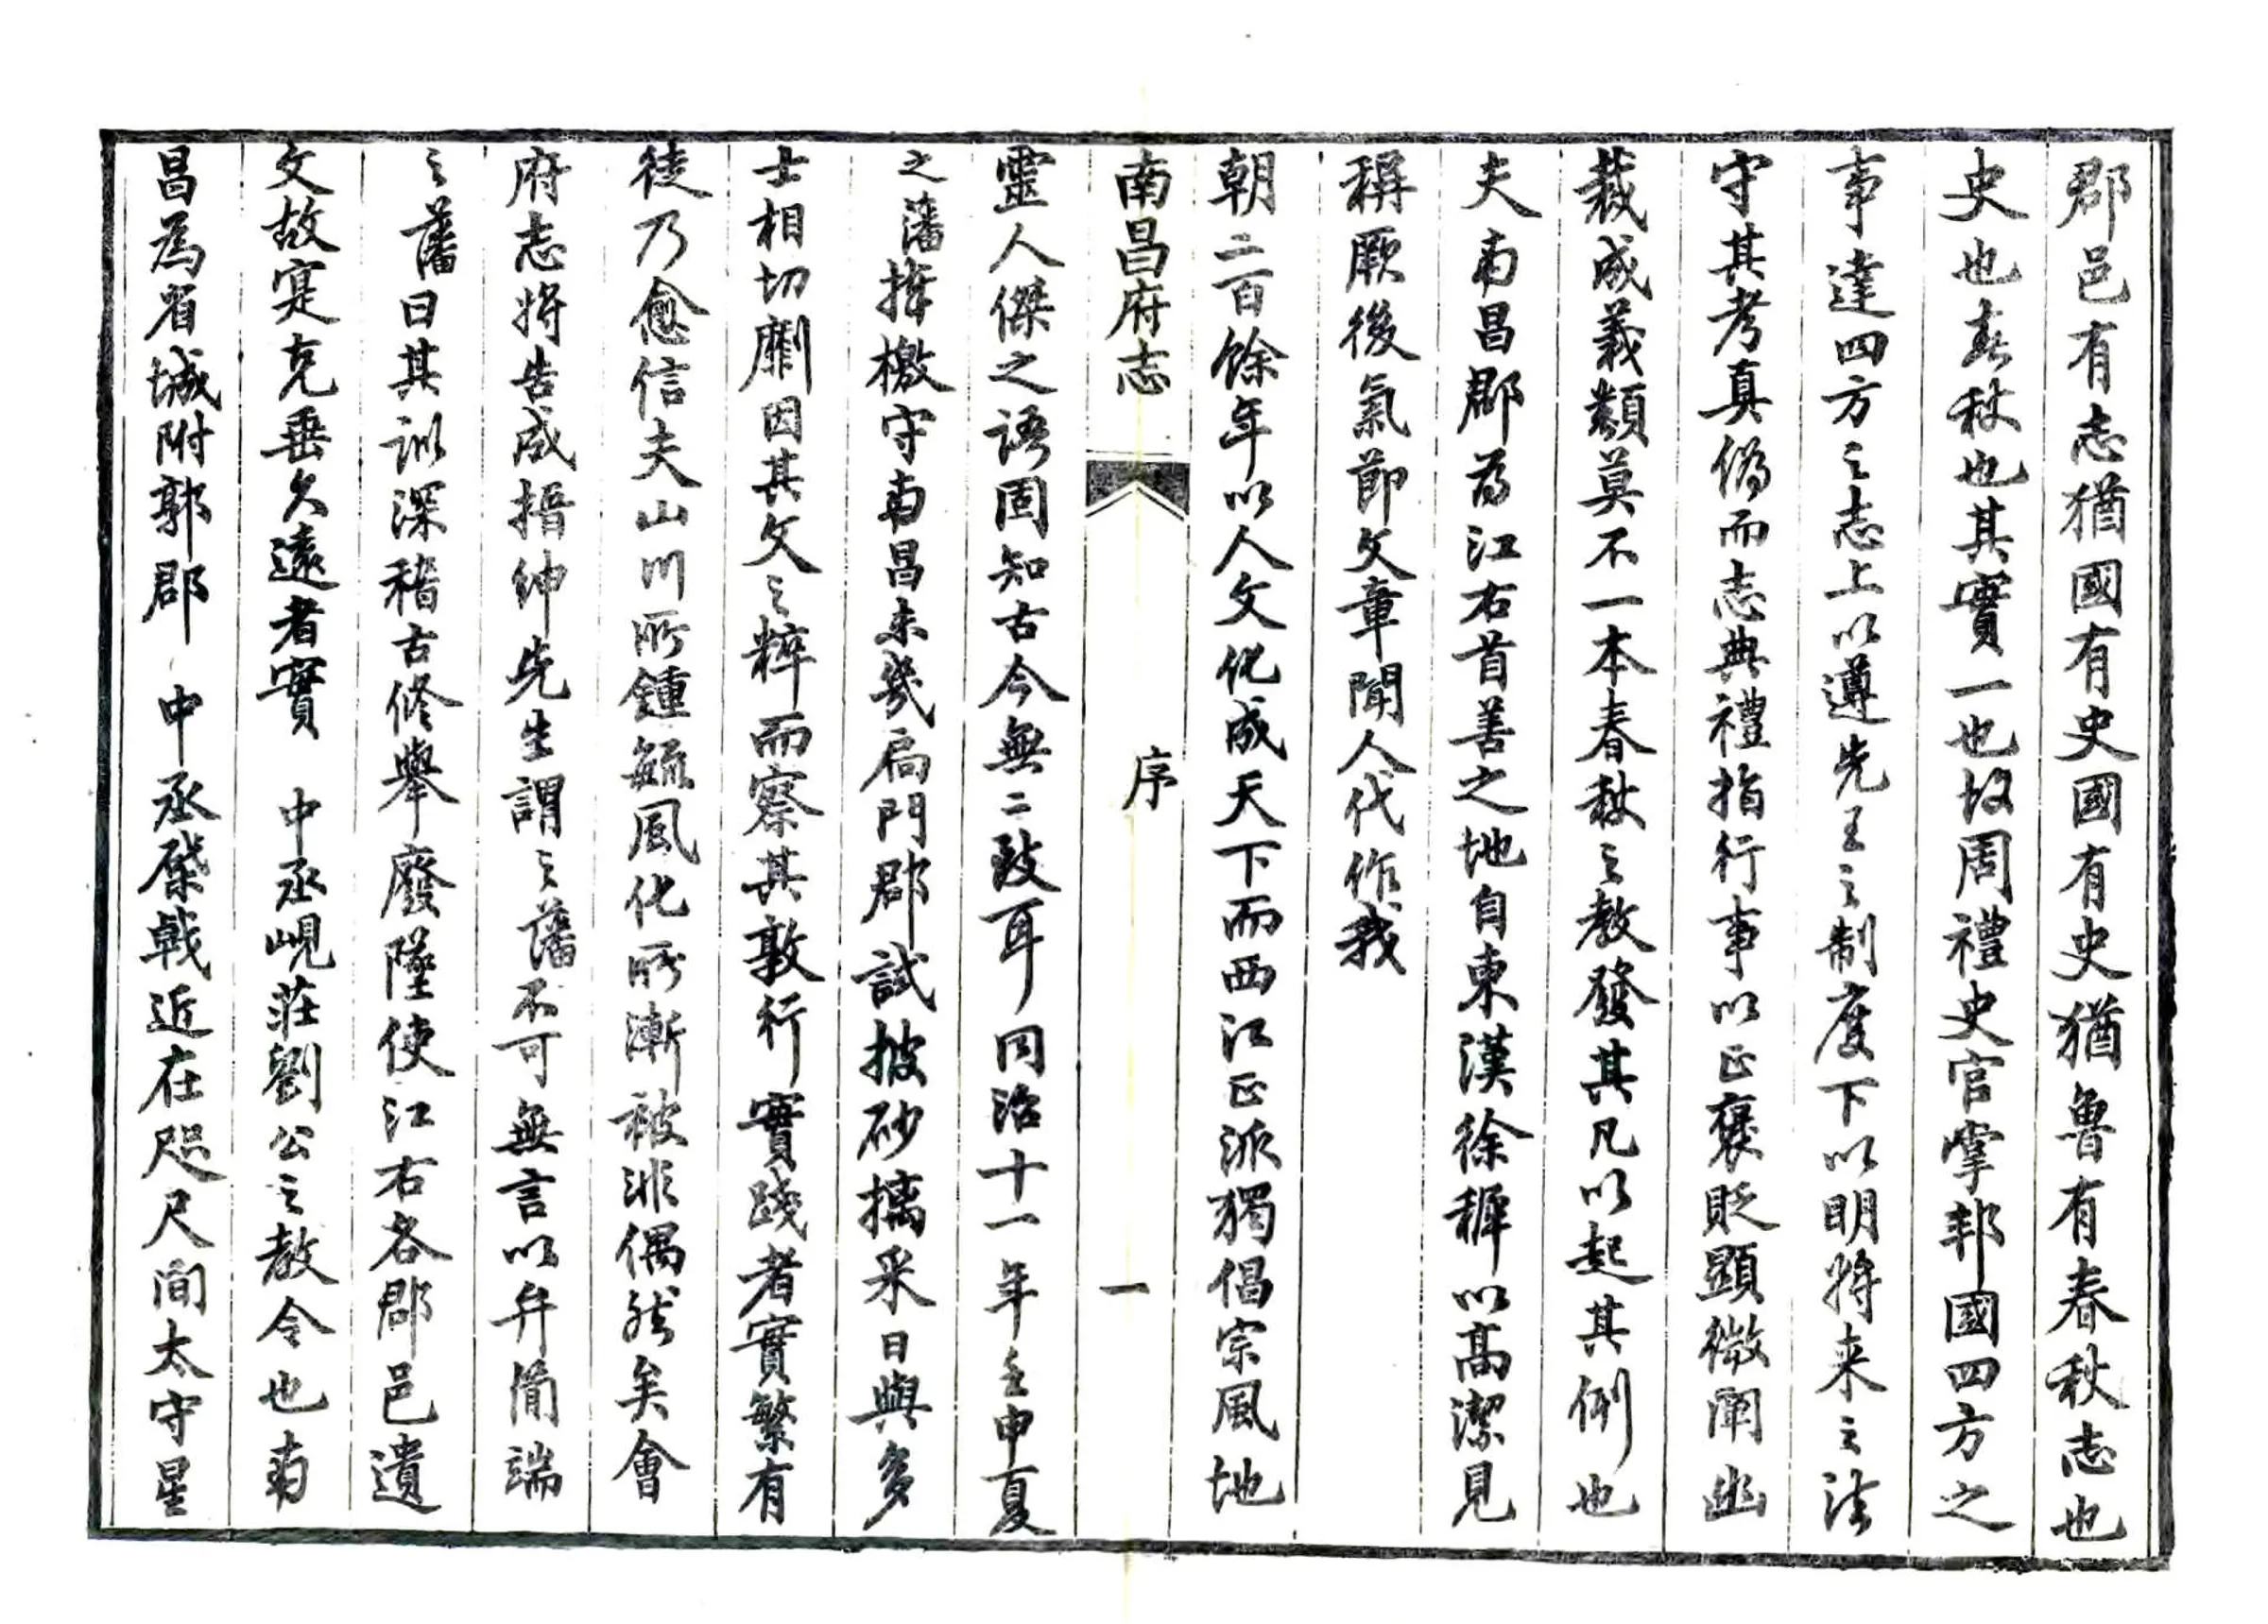 郡邑有志猶國有史國有史猶魯有春秋志也
史也春秋也其實一也故周禮史官掌邦國四方之
事達四方之志上以遵先王之制度下以明將来之法
守其考真偽而志典禮指行事以正褒貶顯微闡幽
裁成義類莫不一本春秋之教發其凡以起其例也
夫南昌郡為江右首善之地自東漢徐穉以高潔見
稱厥後氣節文章聞人代作我
朝二百餘年以人文化成天下而西江正派獨倡宗風地
南昌府志 序 一
靈人傑之語固知古今無二致耳同治十一年壬申夏
之藩捧檄守南昌未幾扃門郡試披砂擒采日與多
士相切劘因其文之粹而察其敦行實踐者實繁有
徒乃愈信夫山川所鍾毓風化所漸被非偶然矣會
府志將告成搢紳先生謂之藩不可無言以弁簡端
之藩曰其訓深稽古修舉廢墜使江右各郡邑遺
文故寔克垂久遠者實 中丞峴莊劉公之教令也南
昌為省城附郭郡 中丞棨戟近在咫尺間太守星